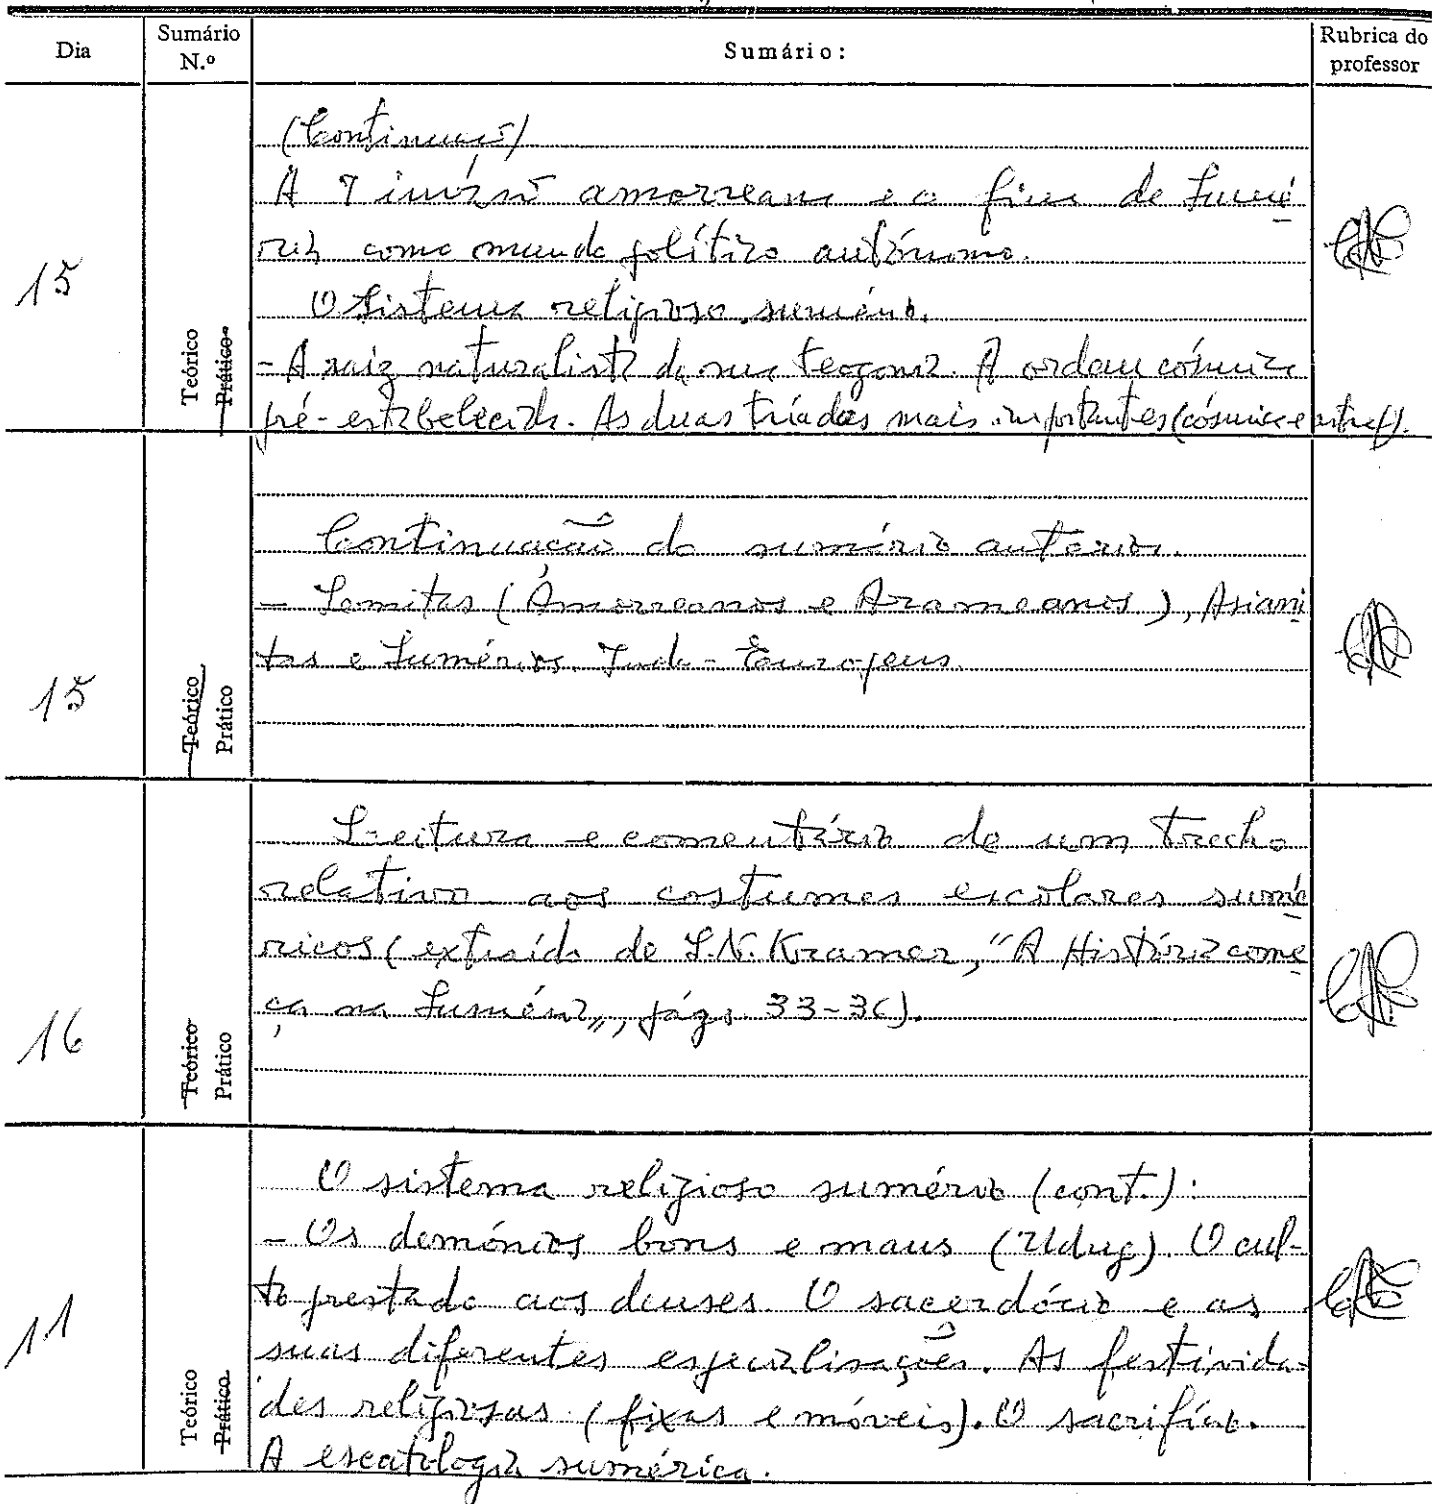 Dia
Sumário N.º
Sumário:
Rubrica do professor
15
Teórico
Prático
(Continuação)
A invasão amorreana e o fim de Sumé
ria como mundo político autónomo.
O Sistema religioso sumério.
- A raiz naturalista da sua teogonia. A ordem cósmica
pré-estabelecida. As duas tríades mais importantes (cósmica e astral).
15
Teórico
Prático
Continuação do sumário anterior.
- Semitas (Amorreanos e Arameanos), Asiani
tas e Sumérios. Indo-Europeus.
16
Teórico
Prático
Leitura e comentário de um trecho
relativo aos costumes escolares sumé
ricos (extraído de S.N. Kramer, "A História come
ça na Suméria", págs. 33-36).
11
Teórico
Prático
O sistema religioso sumério (cont.):
- Os demónios bons e maus (Udug). O cul-
to prestado aos deuses. O sacerdócio e as
suas diferentes especialisações. As festivida-
des religiosas (fixas e móveis). O sacrifício.
A escatologia sumérica.